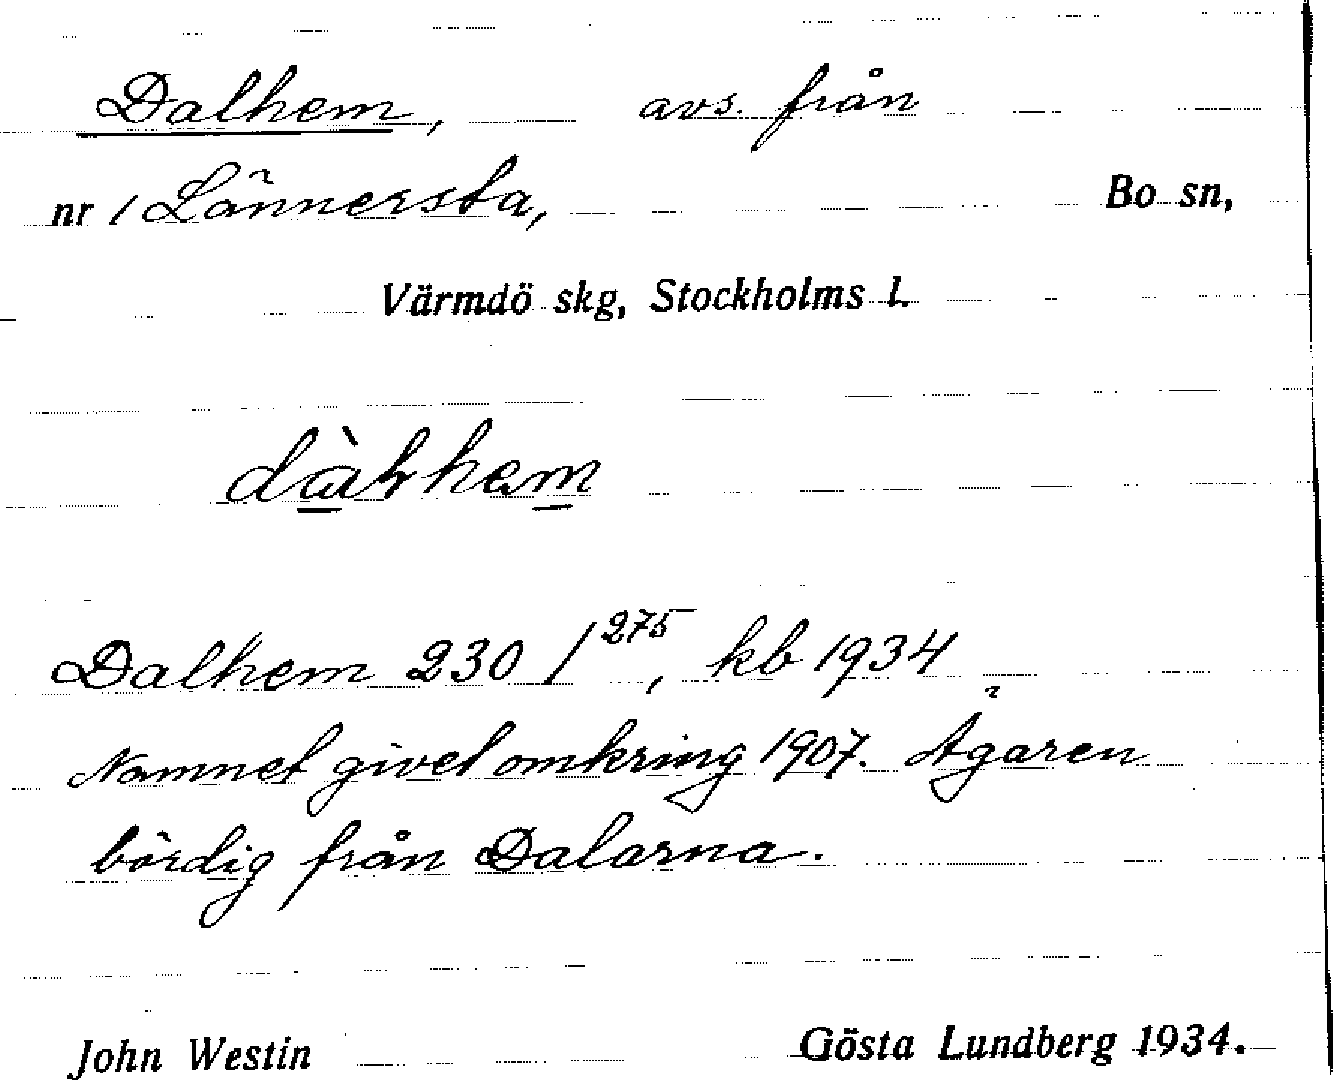 Dalhem, avs. från
nr 1 Lännersta, Bo sn,
Värmdö skg, Stockholms l.
dàlhem
Dalhem 230 / 275, kb 1934
Namnet givet omkring 1907. Ägaren
bördig från Dalarna.
John Westin Gösta Lundberg 1934.